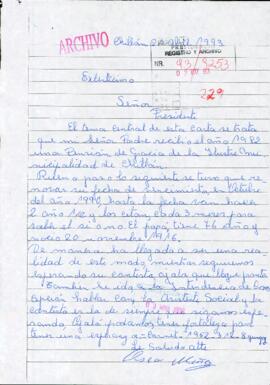 ARCHIVO
Chillán 1993
REGISTRO Y ARCHIVO
NR. 93/9253
Excelentísimo
229
Señor
Presidente
El tema Central de esta Carta se trata
que mi Señor Padre recibio el año 1982
una Pensión de Gracia de la Ilustre Mu
nicipalidad de Chillán
Bueno pasó lo siguiente se tuvo que re
novar su fecha de vencimiento en Octubre
del año 1990 hasta la fecha van hacer
2 año 1/2 y los citan cada 3 meses para
saber si o no. El papá tiene 76 año y
nacio 20 noviembre 1916.
De manera ha llegado a ser una rea
lidad de este modo mientras seguimos
esperando su contesta, ojala que llegue pronto
Tambien he ido a la Intendencia de Con
cepción hablar con la Asistente Social y la
contesta es la de siempre sigamos espe
rando, Ojalá podamos tener fortaleza para
tener una
Le Saluda Atte
Oscar